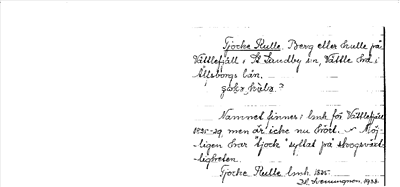 Tjocke Kulle. Berg eller kulle på
Vättlefjäll i St Lundby sn, Vättle hd i
Älfsborgs län.
Namnet finnes i lmk för Vättlefjäll
1825-29, men är icke nu hört. Möj-
ligen har tjock syftat på skogsväxt-
ligheten.
Tjocke Kulle lmk 1825.
1933.